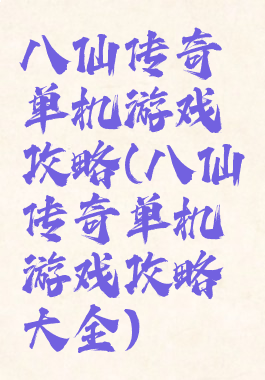 八仙传奇
单机游戏
攻略(八仙
传奇单机
游戏攻略
大全)